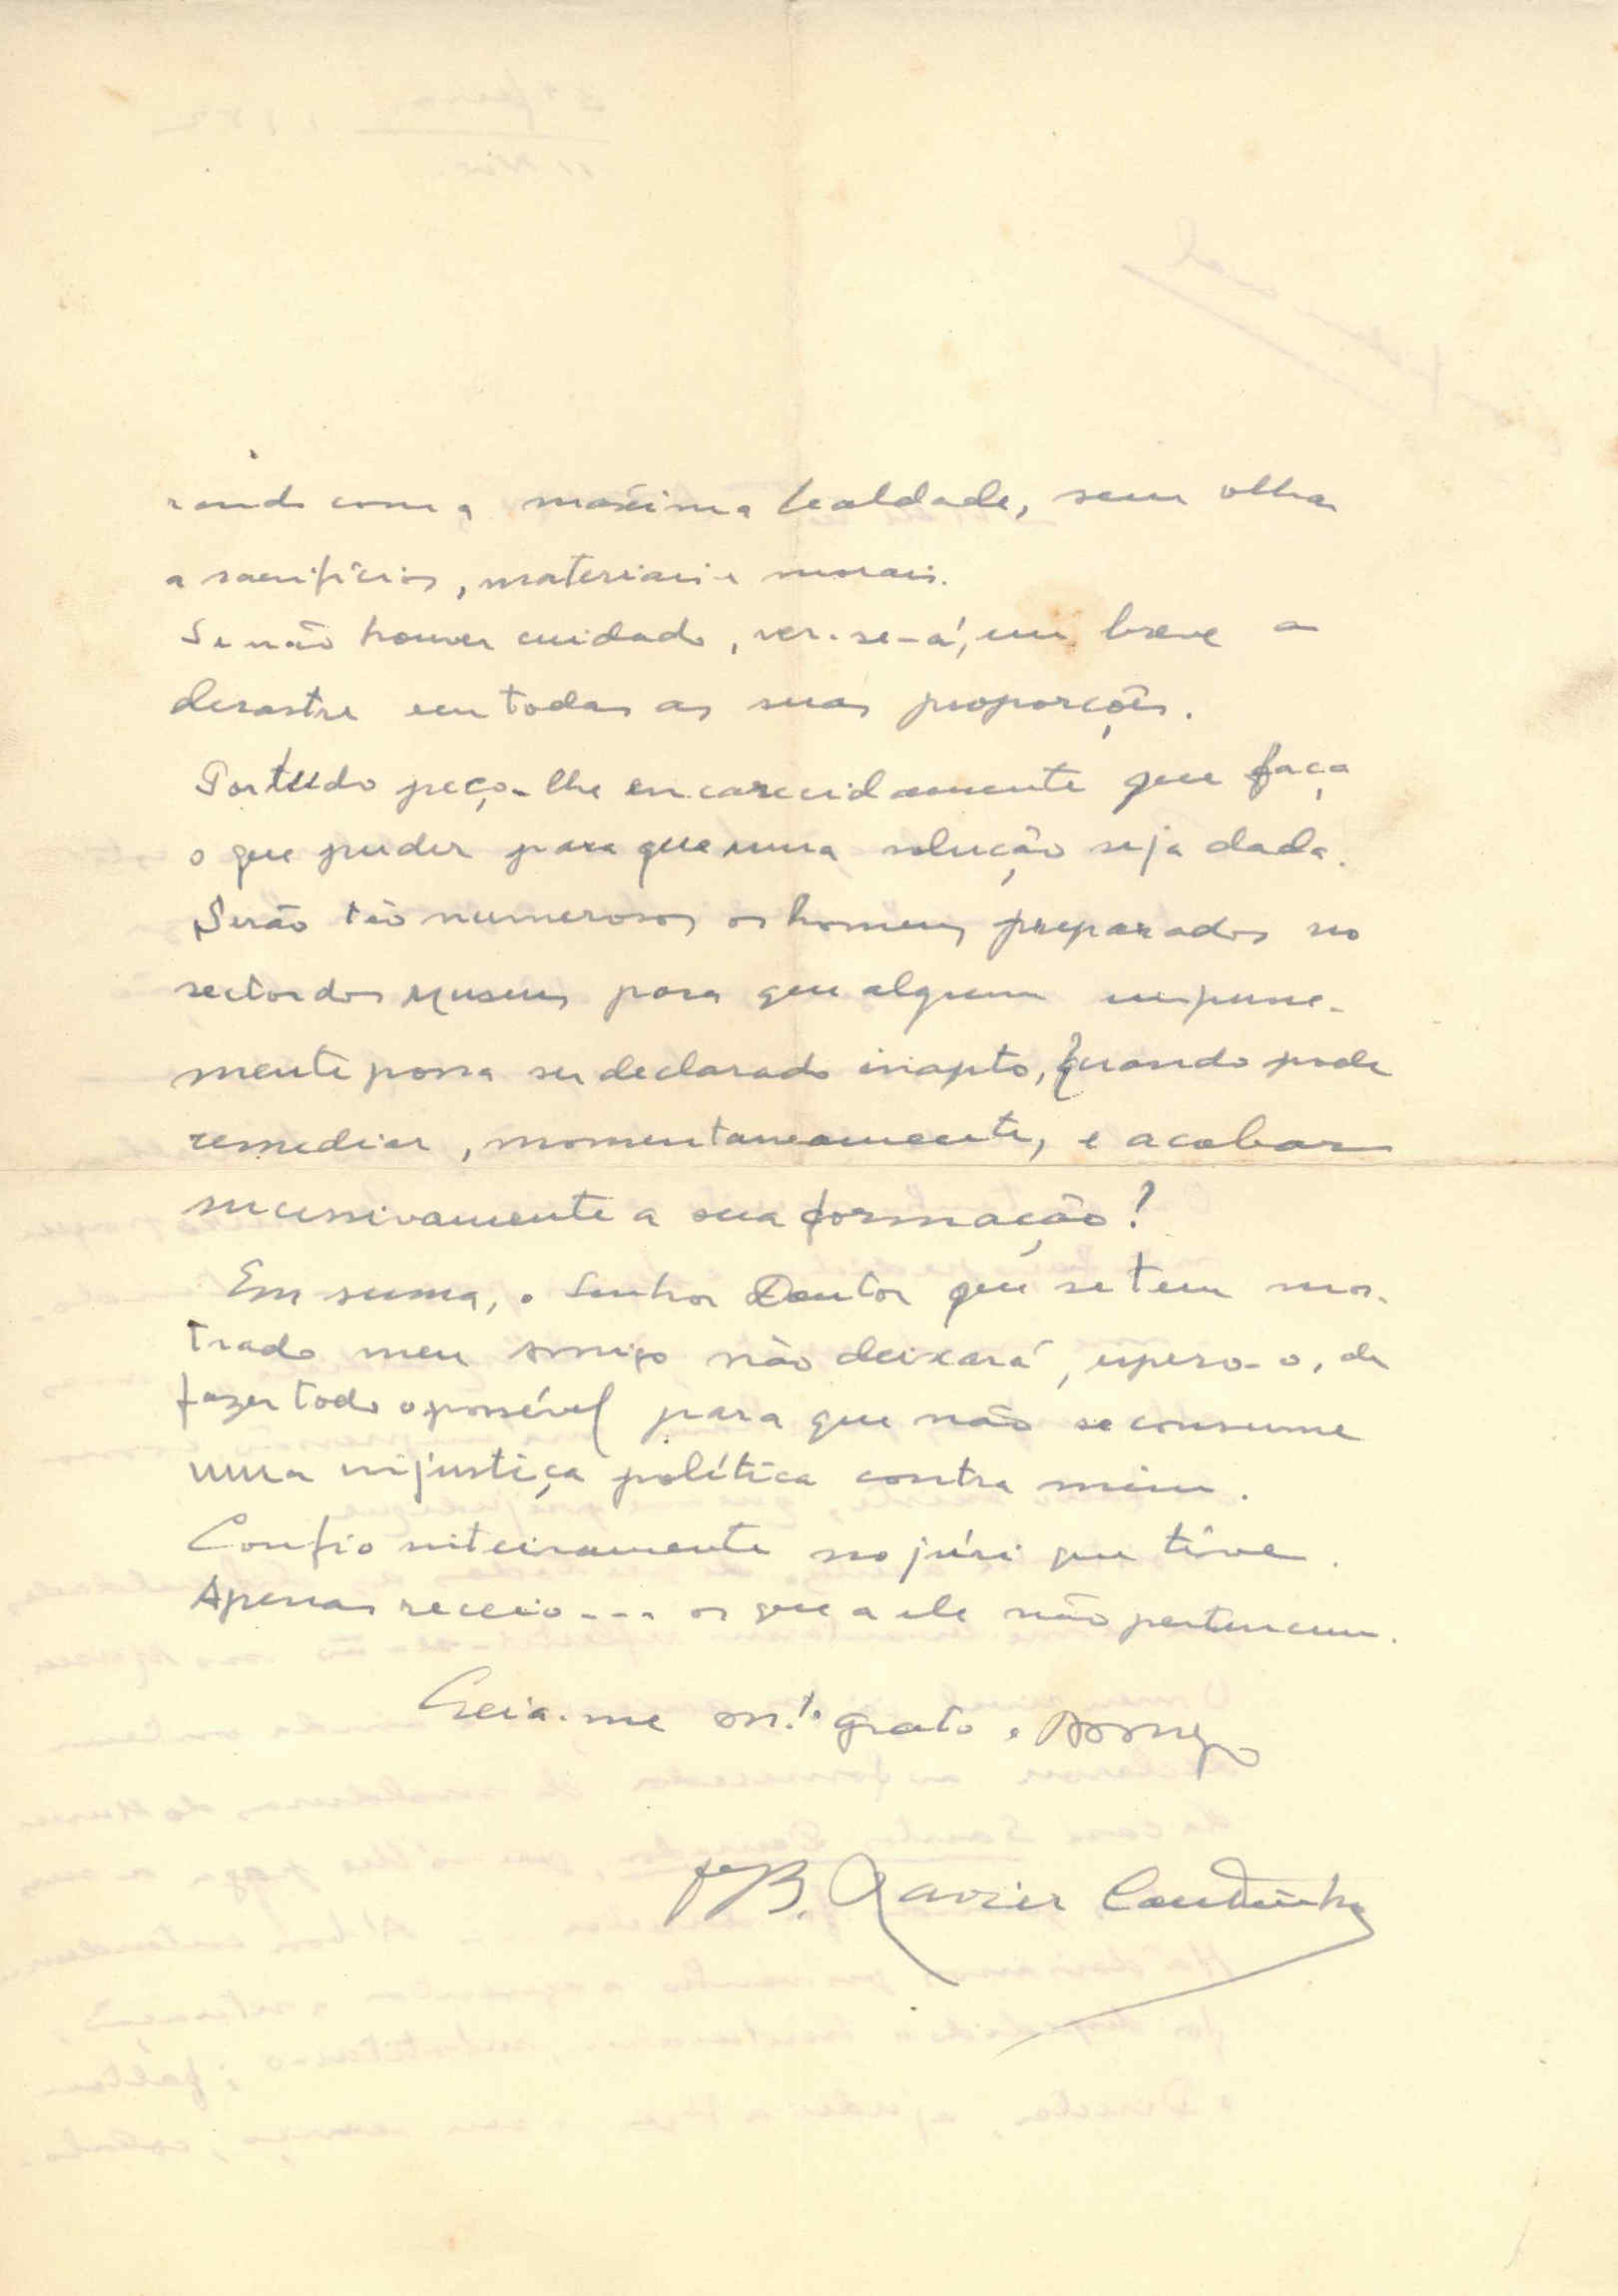 rando com a máxima lealdade, sem olhar
a sacrifícios, materiais e morais.
Se não houver cuidado, ver-se-á, em breve o
desastre em todas as suas proporções.
Por tudo peço-lhe encarecidamente que faça
o que puder para que uma solução seja dada.
Serão tão numerosos os homens preparados no
sector dos Museus para que algum impune-
mente possa ser declarado inapto, quando pode
remediar, momentaneamente, e acabar
sucessivamente a sua formação?
Em suma, o Senhor Doutor que se tem mos-
trado meu amigo não deixará, espero-o, de
fazer todo o possível para que não se consume
uma injustiça política contra mim.
Confio inteiramente no júri que tive.
Apenas receio... os que a ele não pertencem.
Creia-me m.to grato e Amigo
B. Xavier Coutinho